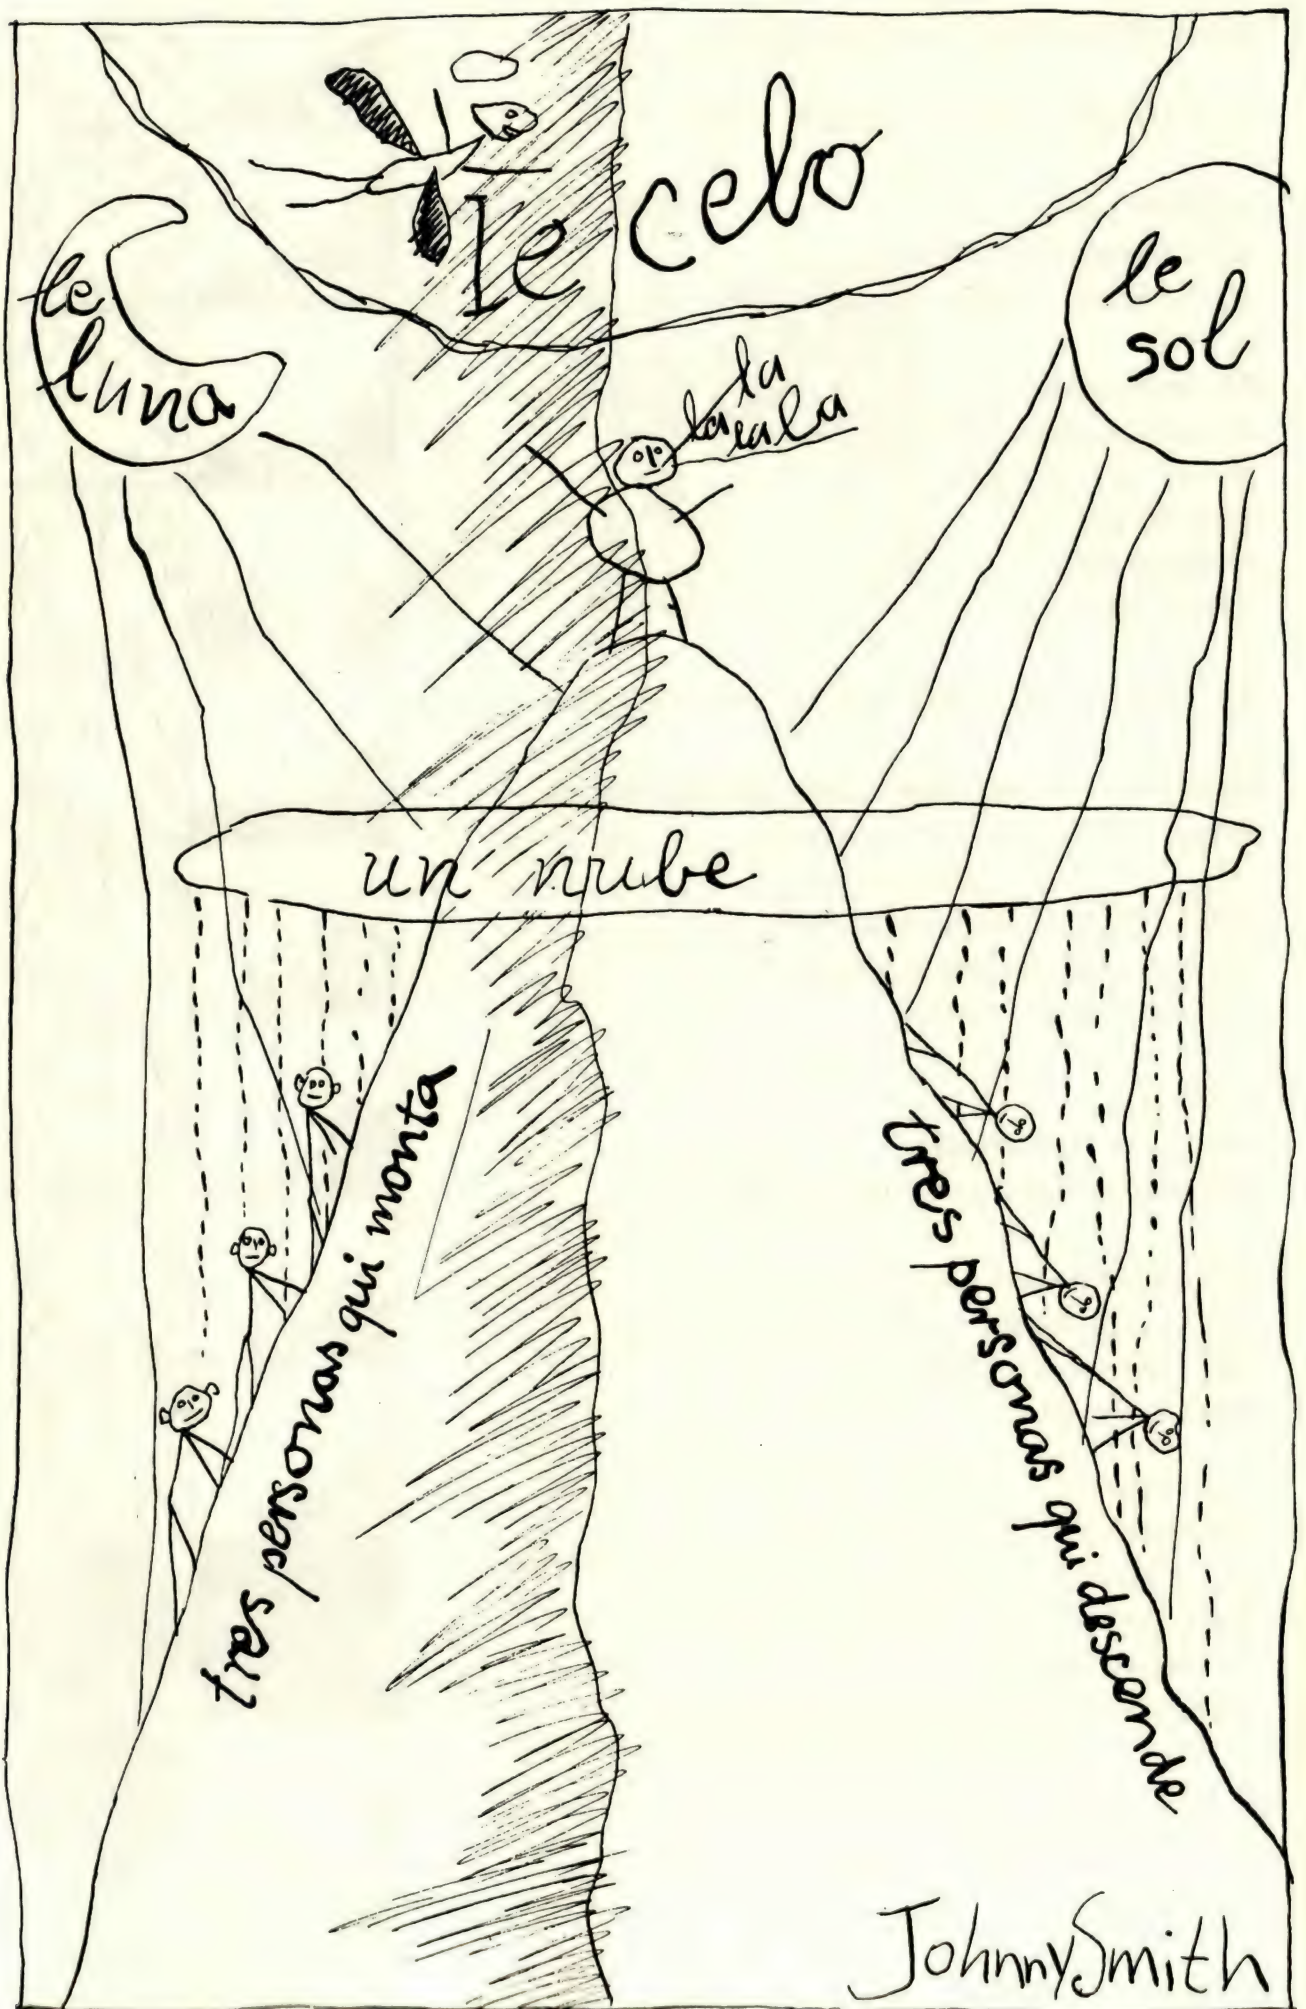 le celo
le
luna
le
sol
la
la la la
un nube
tres personas qui monta
tres personas qui descende
Johnny Smith